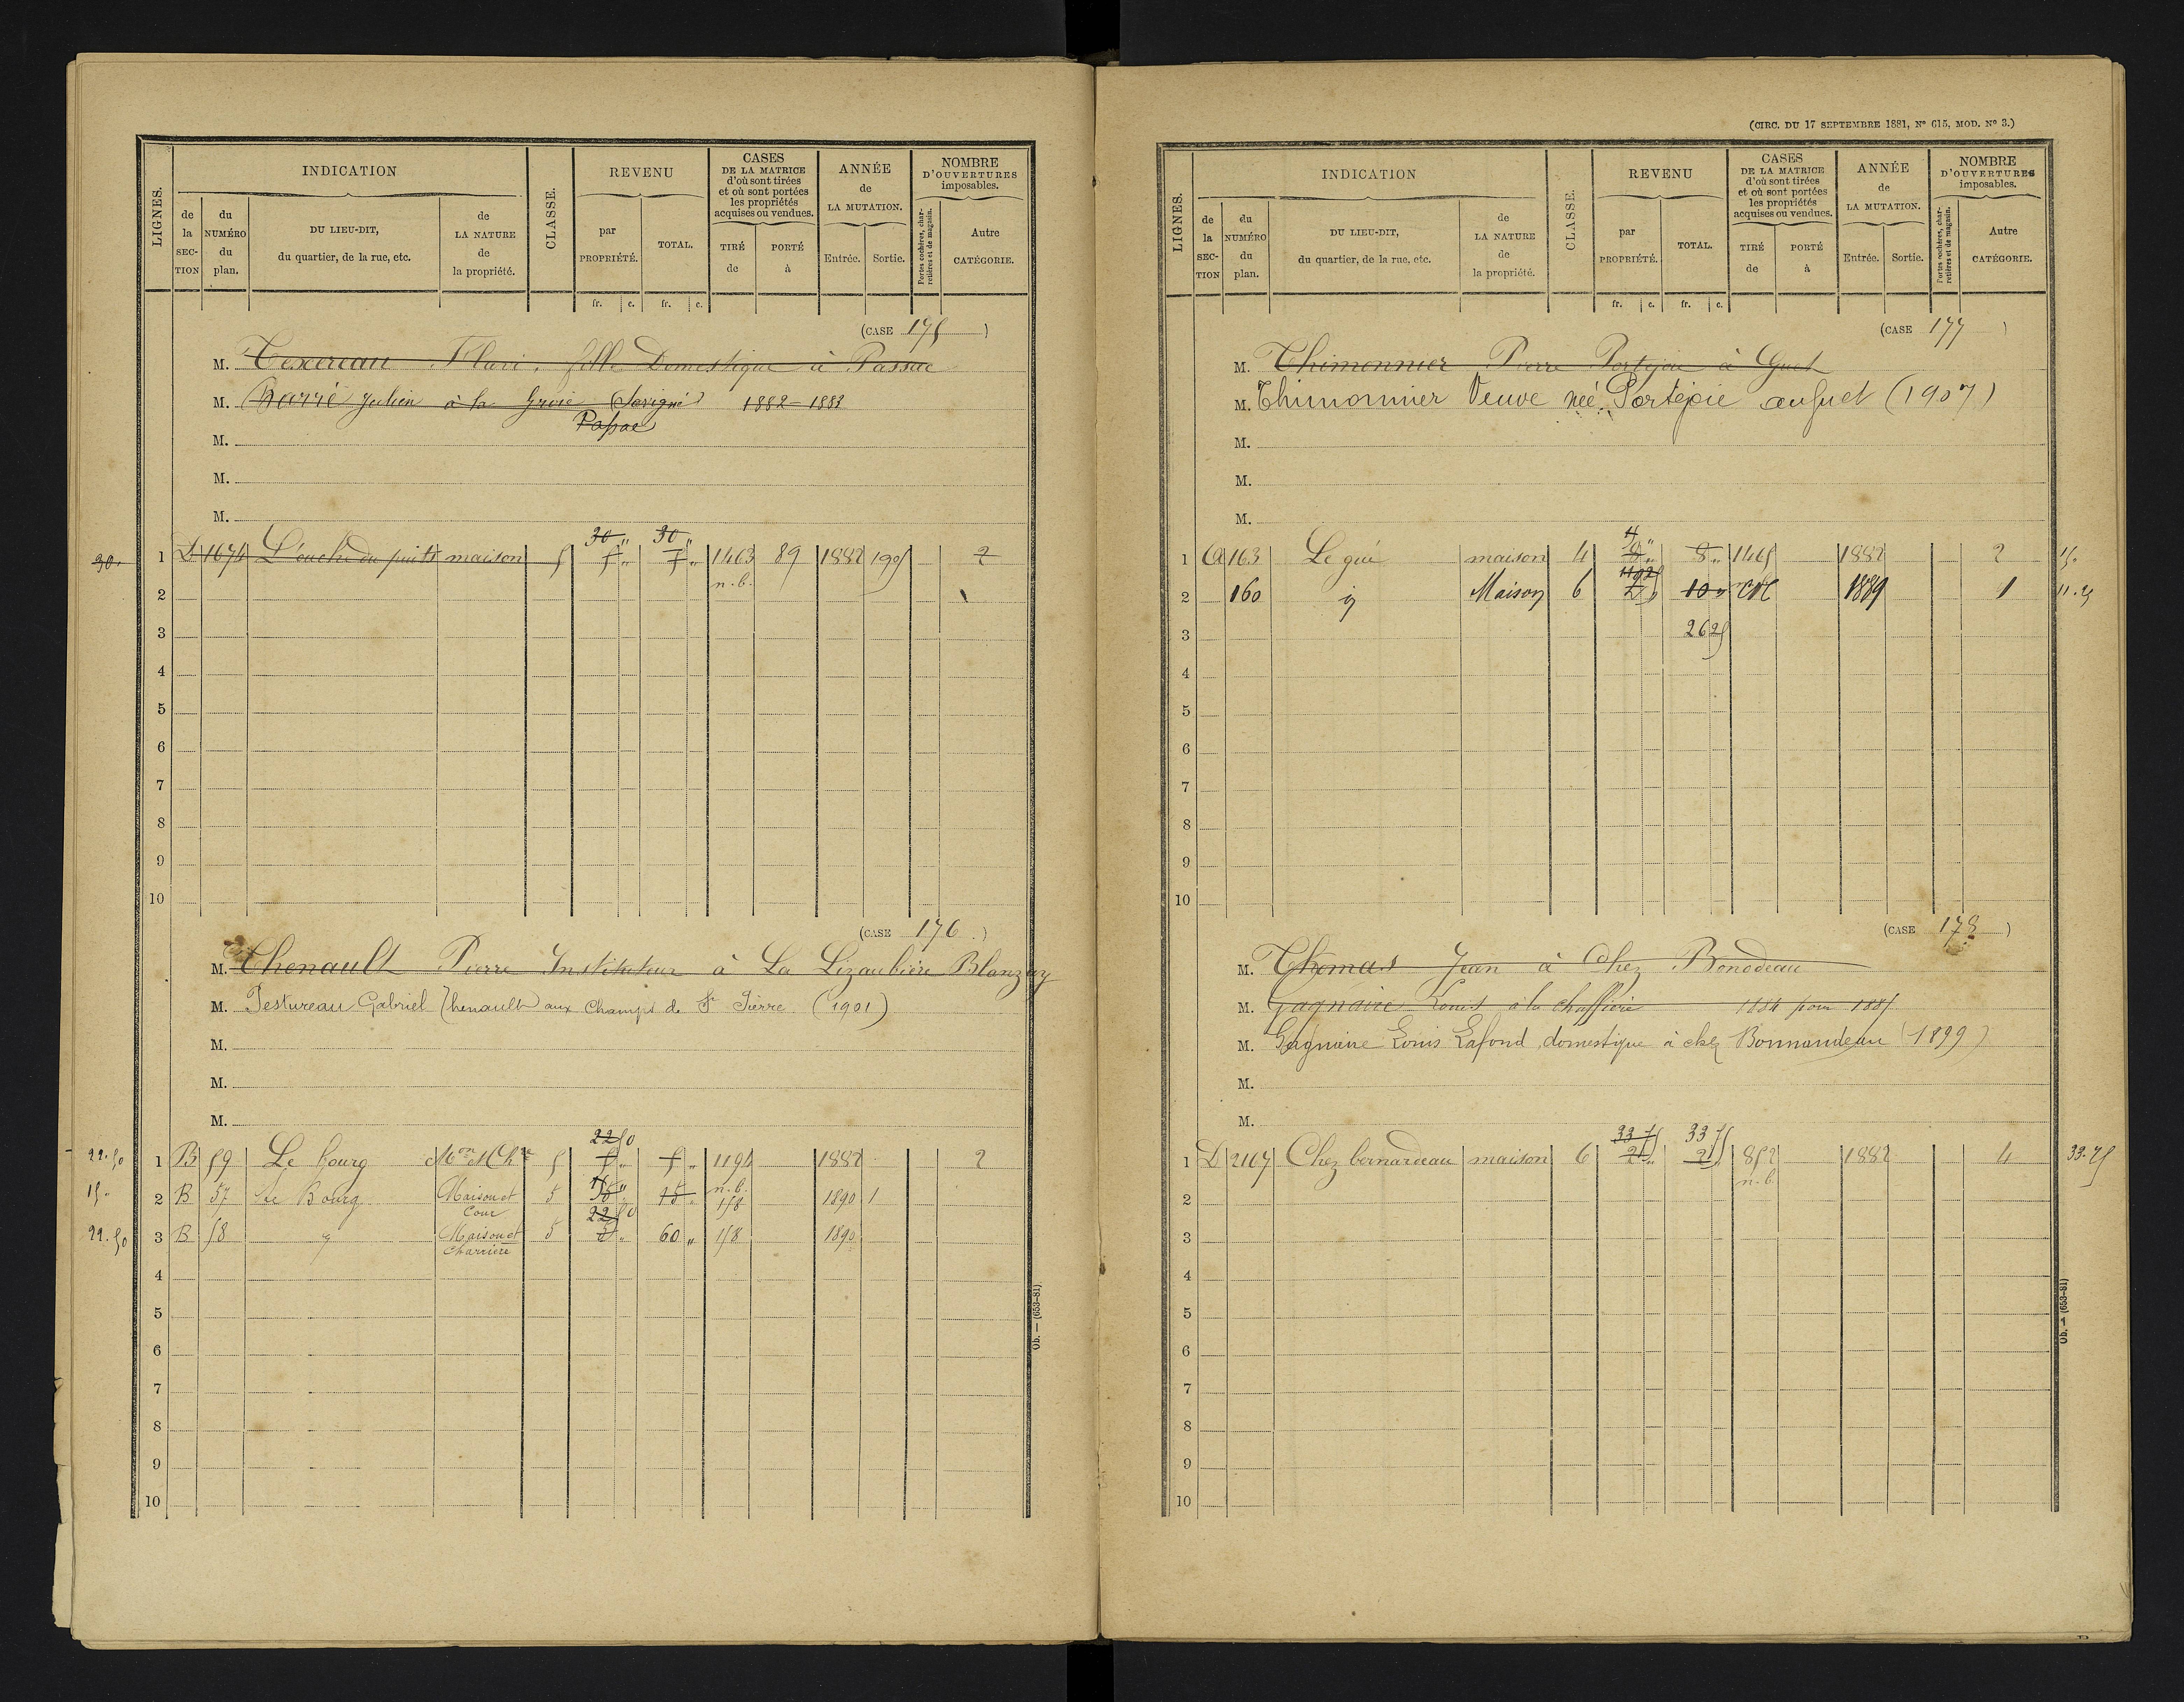 (CIRC. DU 17 SEPTEMBRE 1881, Nº 615, MOD. Nº 3.)
LIGNES.
INDICATION
de la SECTION
du NUMÉRO du plan.
DU LIEU-DIT, du quartier, de la rue, etc.
de LA NATURE de la propriété.
CLASSE.
REVENU
par PROPRIÉTÉ.
TOTAL.
fr. c. fr. c.
CASES DE LA MATRICE d'où sont tirées et où sont portées les propriétés acquises ou vendues.
TIRÉ de
PORTÉ à
ANNÉE de LA MUTATION.
Entrée. Sortie.
NOMBRE D'OUVERTURES imposables.
Portes cochères, charretières et de magasin.
Autre CATÉGORIE.
(CASE 175)
M. Texereau Flavi, fille Domestique à Passac
M. Barrié Julien à la Groie (Savigné) 1882-1883
Passac
M.
M.
M.
30. 1 D 1674 L'ouche du puits maison 5 30 " 30 " 1463 89 1882 1905 2
5 " 5 " n.b.
2
3
4
5
6
7
8
9
10
(CASE 176.)
M. Thenault Pierre Instituteur à La Lizaubière Blanzay
M. Testureau Gabriel (Thenault) aux Champs de St Pierre. (1901)
M.
M.
M.
22.50 1 B 59 Le bourg Mon et Chre 5 22 50 5 " 5 " 1194 1882 2
n.b.
15. 2 B 57 Le Bourg Maison et Cour 5 15 " 15 " 158 1890 1
22.50 3 B 58 Maison et Charrière 5 22 50 5 " 60 " 158 1890
4
5
6
7
8
9
10
Ob. — (653-81)
LIGNES.
INDICATION
de la SECTION
du NUMÉRO du plan.
DU LIEU-DIT, du quartier, de la rue, etc.
de LA NATURE de la propriété.
CLASSE.
REVENU
par PROPRIÉTÉ.
TOTAL.
fr. c. fr. c.
CASES DE LA MATRICE d'où sont tirées et où sont portées les propriétés acquises ou vendues.
TIRÉ de
PORTÉ à
ANNÉE de LA MUTATION.
Entrée. Sortie.
NOMBRE D'OUVERTURES imposables.
Portes cochères, charretières et de magasin.
Autre CATÉGORIE.
(CASE 177)
M. Thimonnier Pierre Portejoie à Guet
M. Thimonnier Veuve née Portejoie au guet (1907)
M.
M.
M.
1 A 163 Le gué maison 4 8 " 8 " 1465 1882 2 15.
2 160 Maison 6 11 25 2 " 10 " 1889 1 11.25
3 26 25
4
5
6
7
8
9
10
(CASE 178)
M. Thomas Jean à Chez Bonodeau
M. Gagnaire Louis à la chaffierie 1884 pour 1885
M. Gagnaire Louis Lafond, domestique à chez Bonnaudeau (1899)
M.
M.
1 D 2107 Chez bernardeau maison 6 33 75 33 75 852 1882 4 33.75
2 " 2 " n.b.
2
3
4
5
6
7
8
9
10
Ob. — (653-81)